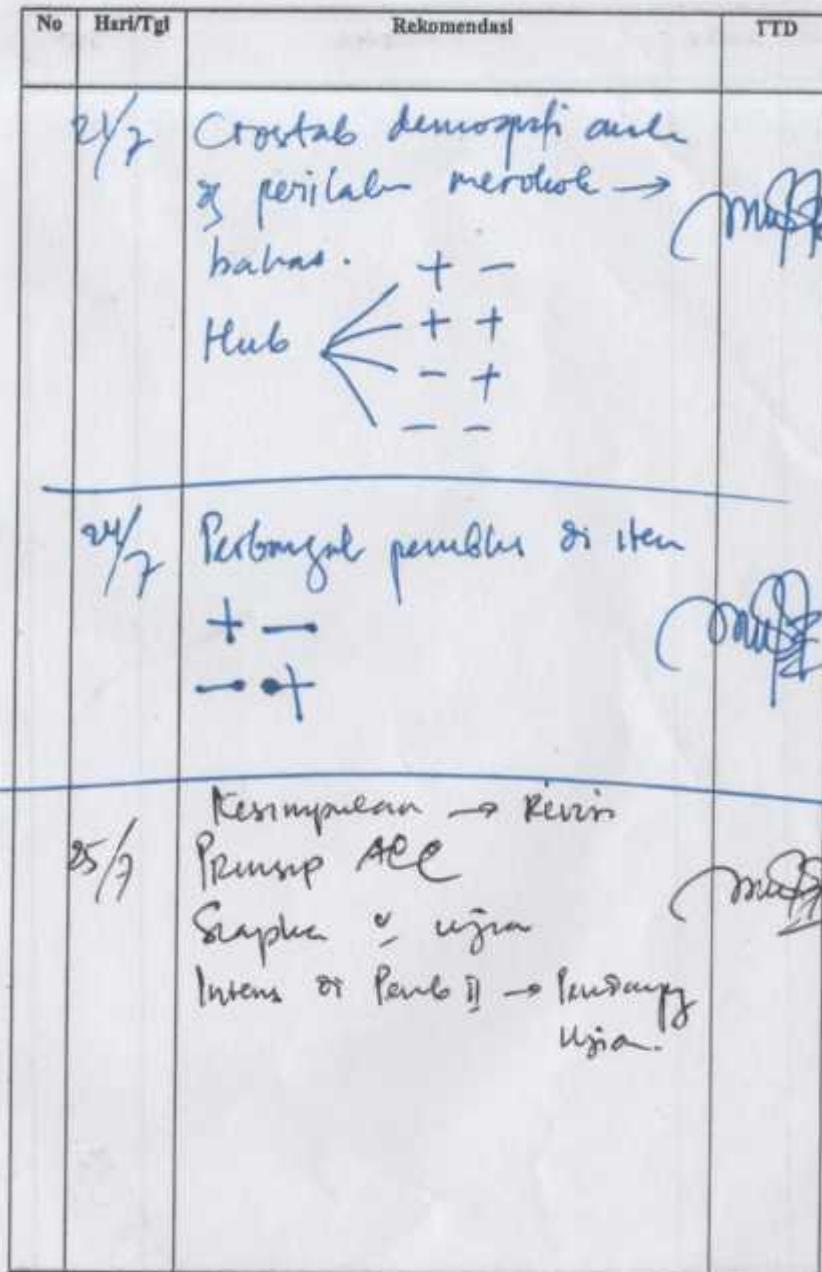 No Hari/Tgl Rekomendasi TTD
21/7 Crostab demografi anak
dg perilaku merokok →
bahas.
+ -
Hub + +
- +
- -
24/7 pembhs di item
+ -
- +
Kesimpulan → Revisi
25/7 Prinsip ACC
Siapkan ujian
Intens di Pemb II →
Ujian.